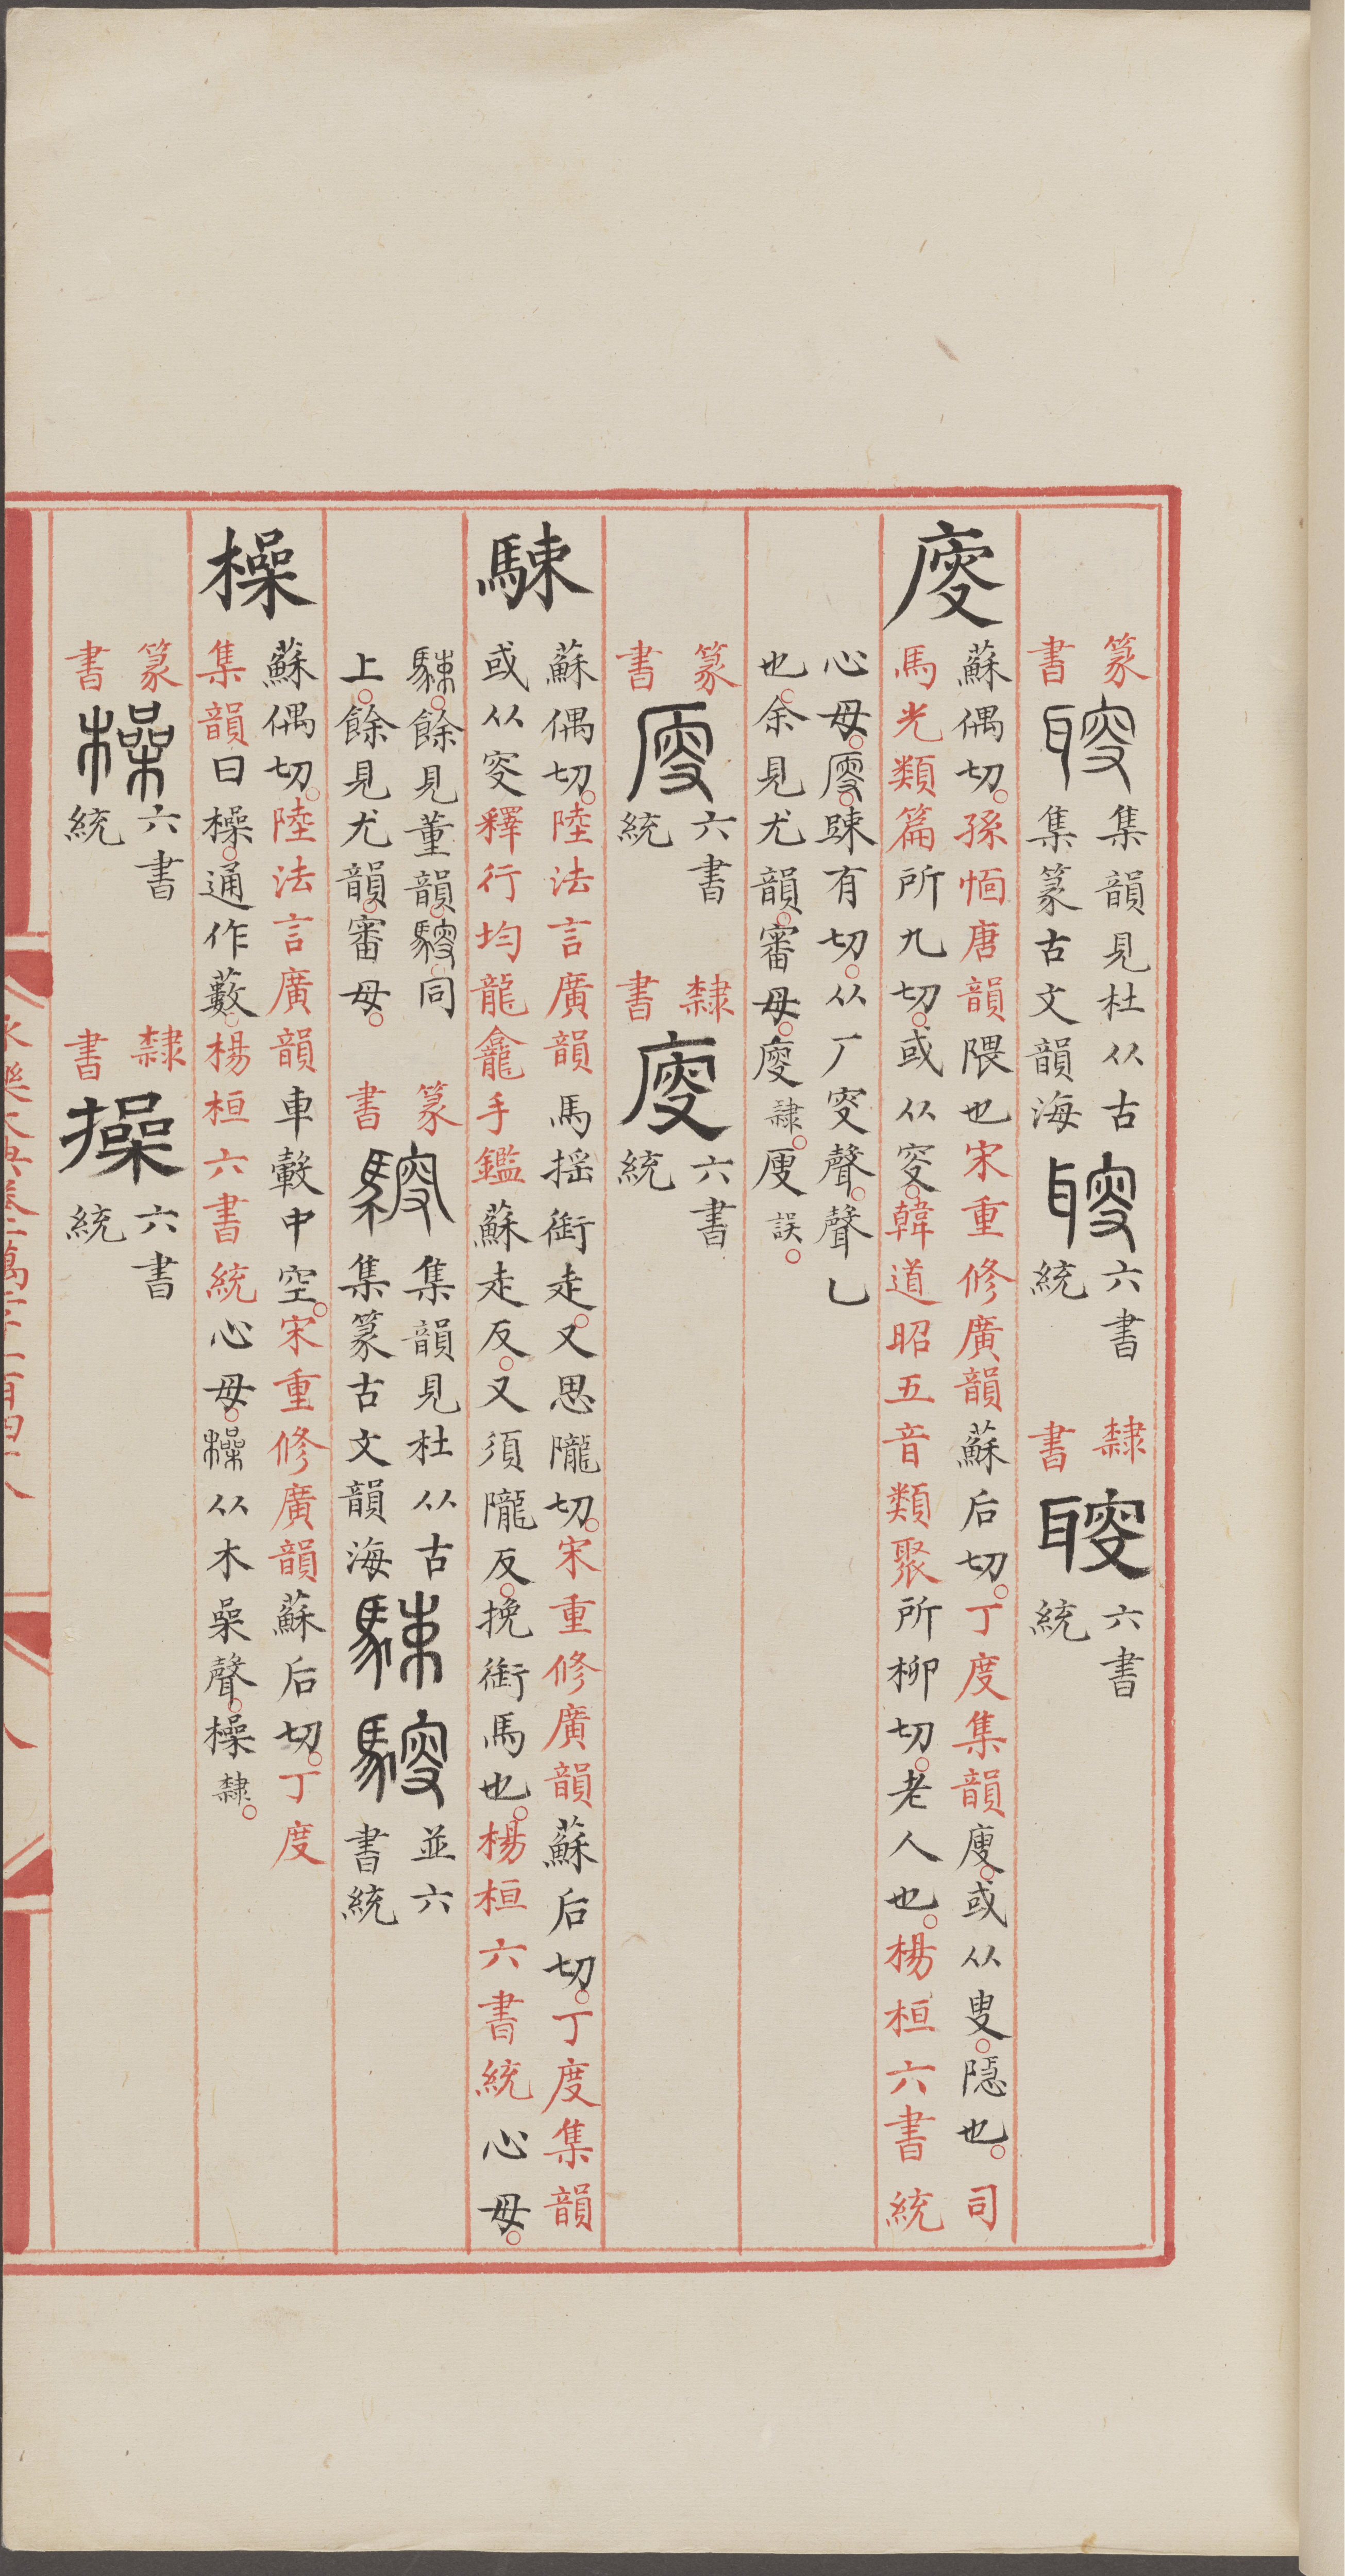 篆書 𦗵 集韻見杜从古
集篆古文韻海 𦗵 六書統 隸書 𦗵 六書統
廀
蘇偶切。孫愐唐韻隈也宋重修廣韻蘇后切。丁度集韻廋。或从叟。隱也。司
馬光類篇所九切。或从㕅。韓道昭五音類聚所柳切。老人也。楊桓六書統
心母。廀。踈有切。从厂㕅聲。聲乚
也。余見尤韻。審母。廀隷。廋誤。
篆書 廀 六書統 隸書 廀 六書統
駷
蘇偶切。陸法言廣韻馬揺銜走。又思隴切。宋重修廣韻蘇后切。丁度集韻
或从㕅釋行均龍龕手鑑蘇走反。又須隴反。挽銜馬也。楊桓六書統心母。
駷。餘見董韻。騪同
上。餘見尤韻。審母。
篆書 騪 集韻見杜从古
集篆古文韻海 駷 騪 並六書統
橾
蘇偶切。陸法言廣韻車轂中空。宋重修廣韻蘇后切。丁度
集韻曰橾。通作藪。楊桓六書統心母。橾从木喿聲。橾隸。
篆書 橾 六書統 隸書 操 六書統